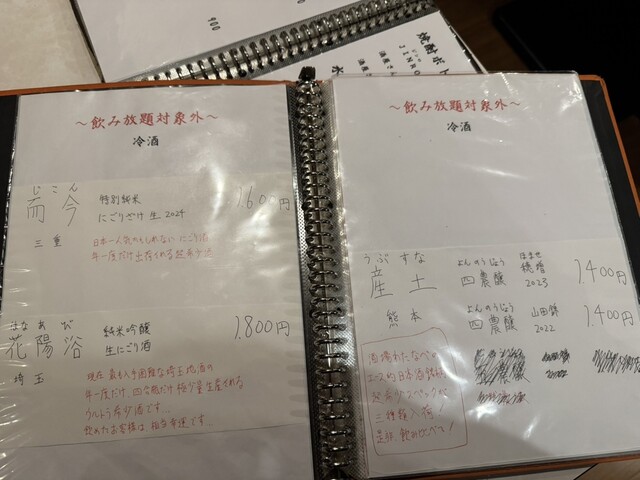 900
焼酎ボト
JINRO
～飲み放題対象外～
冷酒
じこん
而今
特別純米
にごりざけ 生 2024
1,600円
三重
日本一人気かもしれない にごり酒
年一度だけ出荷される超希少酒
はなあび
花陽浴
純米吟醸
生にごり酒
1,800円
埼玉
現在 最も入手困難な埼玉地酒の
年一度だけ、四合瓶だけ極少量生産される
ウルトラ希少酒です…
飲めたお客様は 相当幸運です…
～飲み放題対象外～
冷酒
うぶすな
産土
熊本
よんのうじょう
四農醸
ほませ
穂増
2023
1,400円
よんのうじょう
四農醸
山田錦
2022
1,400円
酒場わたなべの
エース的日本酒銘柄
超希少スペックが
三種類入荷!
是非、飲み比べて!